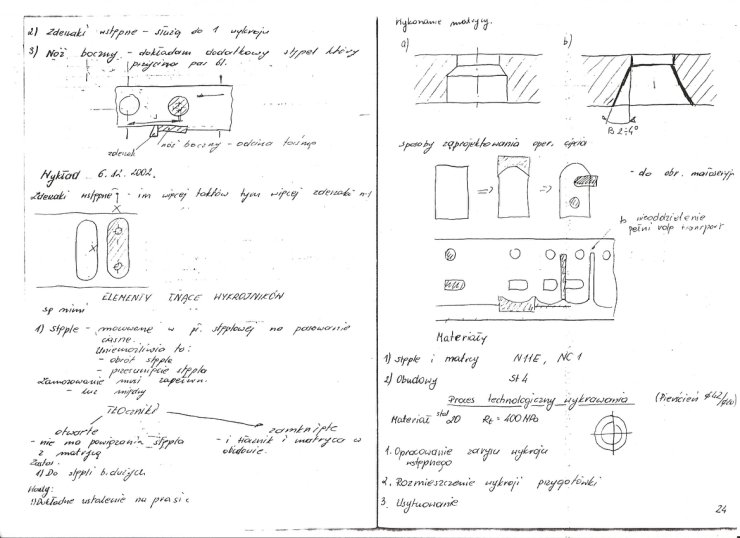 2) Zderzaki wstępne - służą do 1 wykroju
3) Nóż boczny - dokładam dodatkowy stępel który
przycina pas bl.
s
zderzak
nóż boczny - odcina taśmę
Wykład 6.12.2002.
Zderzaki wstępne - im więcej taktów tym więcej zderzaki n-1
ELEMENTY TNĄCE WYKROJNIKÓW
są nimi
1) stęple - mocowane w pł. stęplowej na pasowanie
ciasne.
Uniemożliwia to:
- obrót stępla
- przesunięcie stępla
Zamocowanie musi zapewn.
- luz między
TŁOCZNIKI
otwarte
- nie ma powiązania stępla
z matrycą
Zastos.
1) Do stępli b. dużych
Wady:
1) Dokładne ustalenie na prasie
zamknięte
- i tłocznik i matryca w
obudowie.
Wykonanie matrycy.
a)
b)
B 2÷4°
sposoby zaprojektowania oper. cięcia
- do obr. małoseryjn
b wooddzielenie
pełni rolę transport
Materiały
1) stęple i matryc N11E, NC1
2) Obudowy St4
Proces technologiczny wykrawania (Pierścień φ42/φ20)
Materiał stal 20 Rt = 400 MPa
1. Opracowanie zarysu wykroju
wstępnego
2. Rozmieszczenie wykroji przygotówki
3. Usytuowanie
24